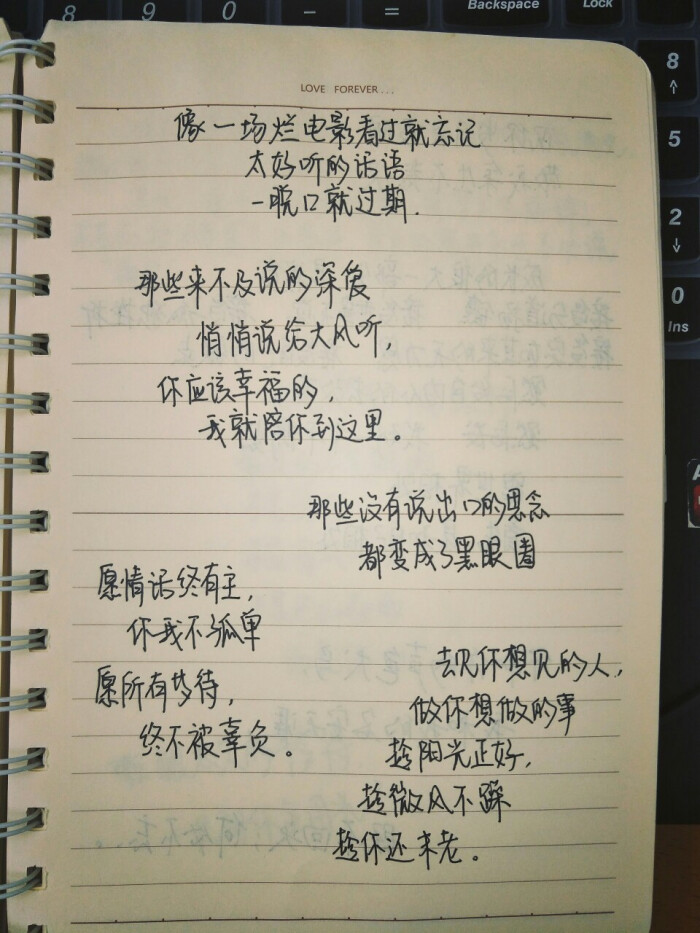 Backspace
Lock
8
9
0
-
=
8
5
2
0
Ins
LOVE FOREVER...
像一场烂电影看过就忘记
太好听的话语
一脱口就过期.
那些来不及说的深爱
悄悄说给大风听,
你应该幸福的,
我就陪你到这里。
那些没有说出口的思念
都变成了黑眼圈
愿情话终有主,
你我不孤单
愿所有等待,
终不被辜负。
去见你想见的人,
做你想做的事
趁阳光正好,
趁微风不躁
趁你还未老。